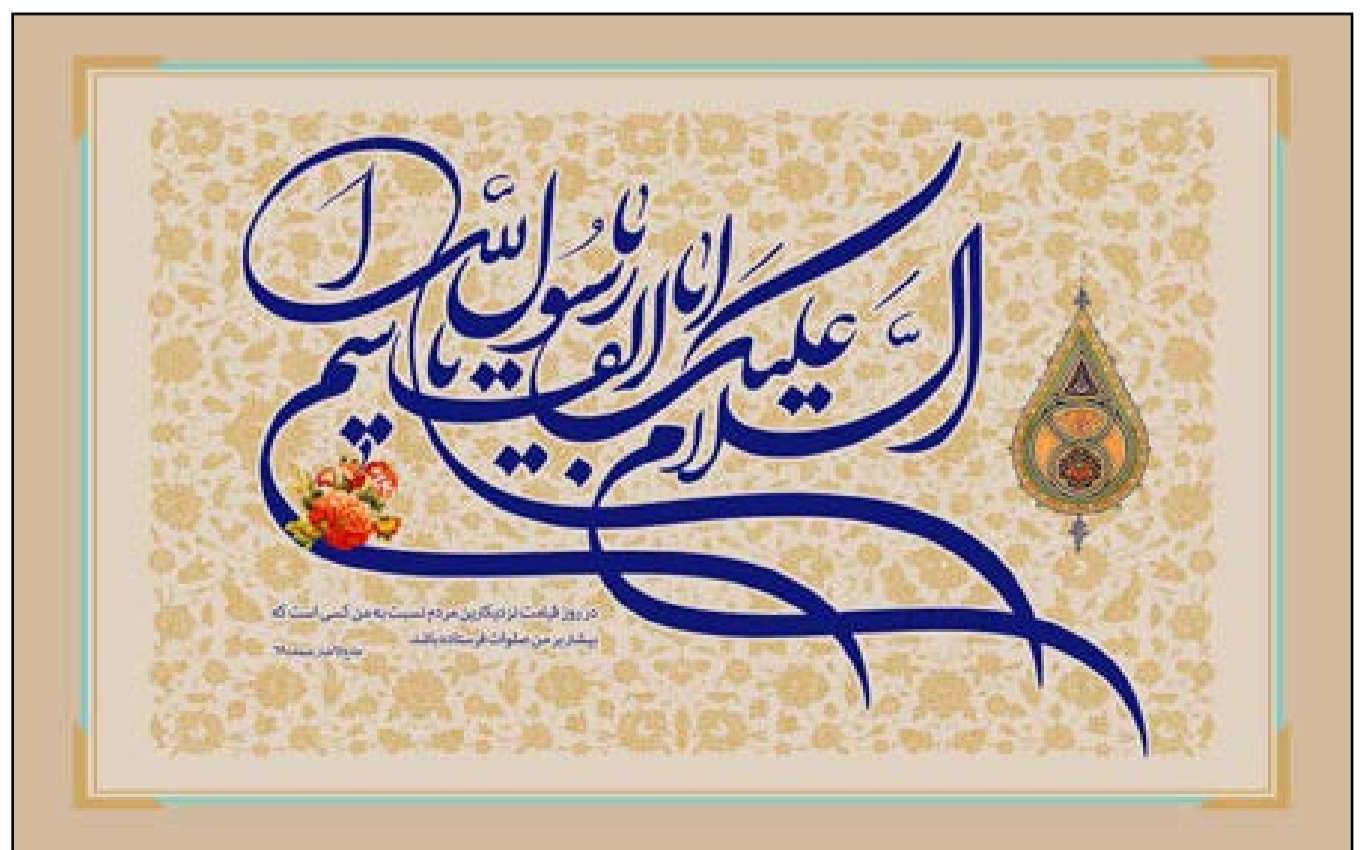 السلام علیک یا ابا القاسم یا رسول الله
در روز قیامت نزدیکترین مردم نسبت به من کسی است که
بیشتر بر من صلوات فرستاده باشد.